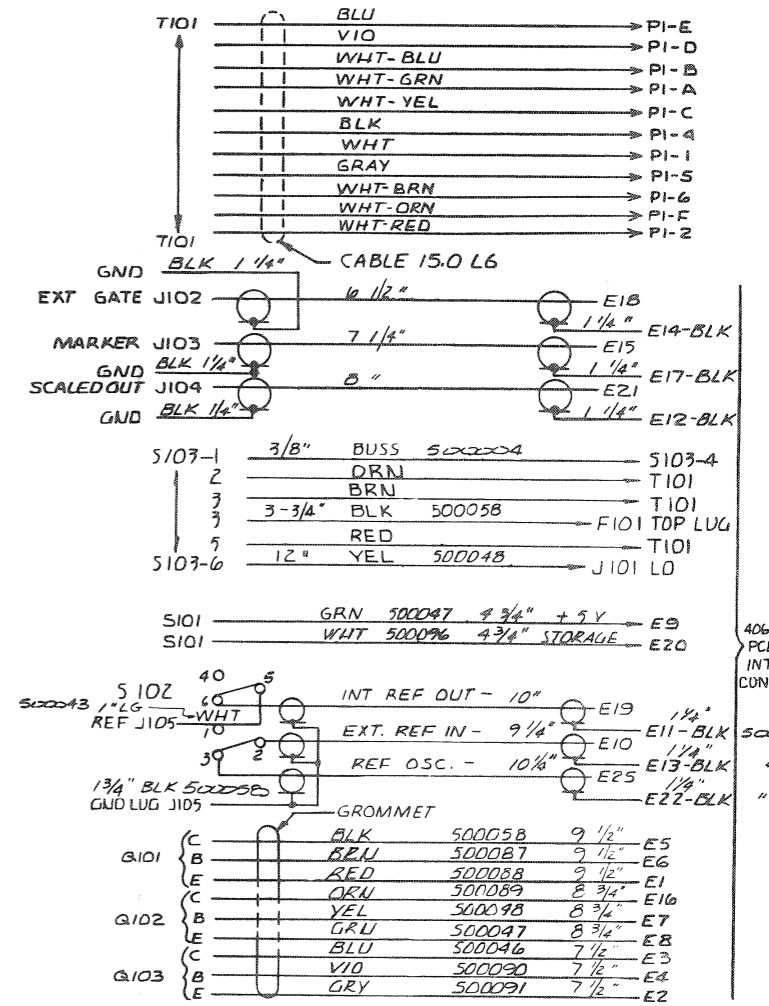 T101 BLU P1-E
VIO P1-D
WHT-BLU P1-B
WHT-GRN P1-A
WHT-YEL P1-C
BLK P1-4
WHT P1-1
GRAY P1-5
WHT-BRN P1-6
WHT-ORN P1-F
WHT-RED P1-2
T101
CABLE 15.0 LG
GND BLK 1 1/4"
EXT GATE J102 6 1/2" E18
1 1/4" E14-BLK
MARKER J103 7 1/4" E15
GND BLK 1 1/4" 1 1/4" E17-BLK
SCALED OUT J104 8" E21
GND BLK 1/4" 1 1/4" E12-BLK
S103-1 3/8" BUSS 500004 S103-4
2 ORN T101
3 BRN T101
3 3-3/4" BLK 500058 F101 TOP LUG
5 RED T101
S103-6 12" YEL 500048 J101 LO
S101 GRN 500047 4 3/4" +5V E9
S101 WHT 500096 4 3/4" STORAGE E20
406
PC
INT
CON
4 5
S102 6 INT REF OUT - 10" E19
500043 1" LG WHT 1 1/4"
REF J105 1 EXT. REF IN - 9 1/4" E10 E11-BLK
3 2 1 1/4" E13-BLK
REF OSC. - 10 1/4" E25
1 3/4" BLK 500058 1 1/4"
GND LUG J105 E22-BLK "
GROMMET
Q101 C BLK 500058 9 1/2" E5
B BRN 500087 9 1/2" E6
E RED 500088 9 1/2" E1
Q102 C ORN 500089 8 3/4" E16
B YEL 500048 8 3/4" E7
E GRN 500047 8 3/4" E8
Q103 C BLU 500046 7 1/2" E3
B VIO 500090 7 1/2" E4
E GRY 500091 7 1/2" E2